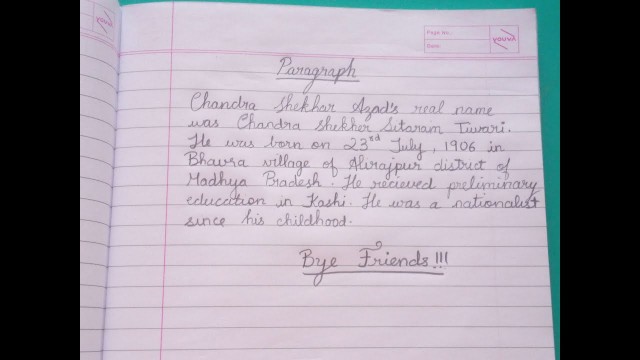 Page No.:
Date:
Paragraph
Chandra Shekhar Azad's real name
was Chandra Shekher Sitaram Tiwari.
He was born on 23rd July, 1906 in
Bhavra village of Alirajpur district of
Madhya Pradesh. He recieved preliminary
education in Kashi. He was a nationalist
since his childhood.
Bye Friends!!!